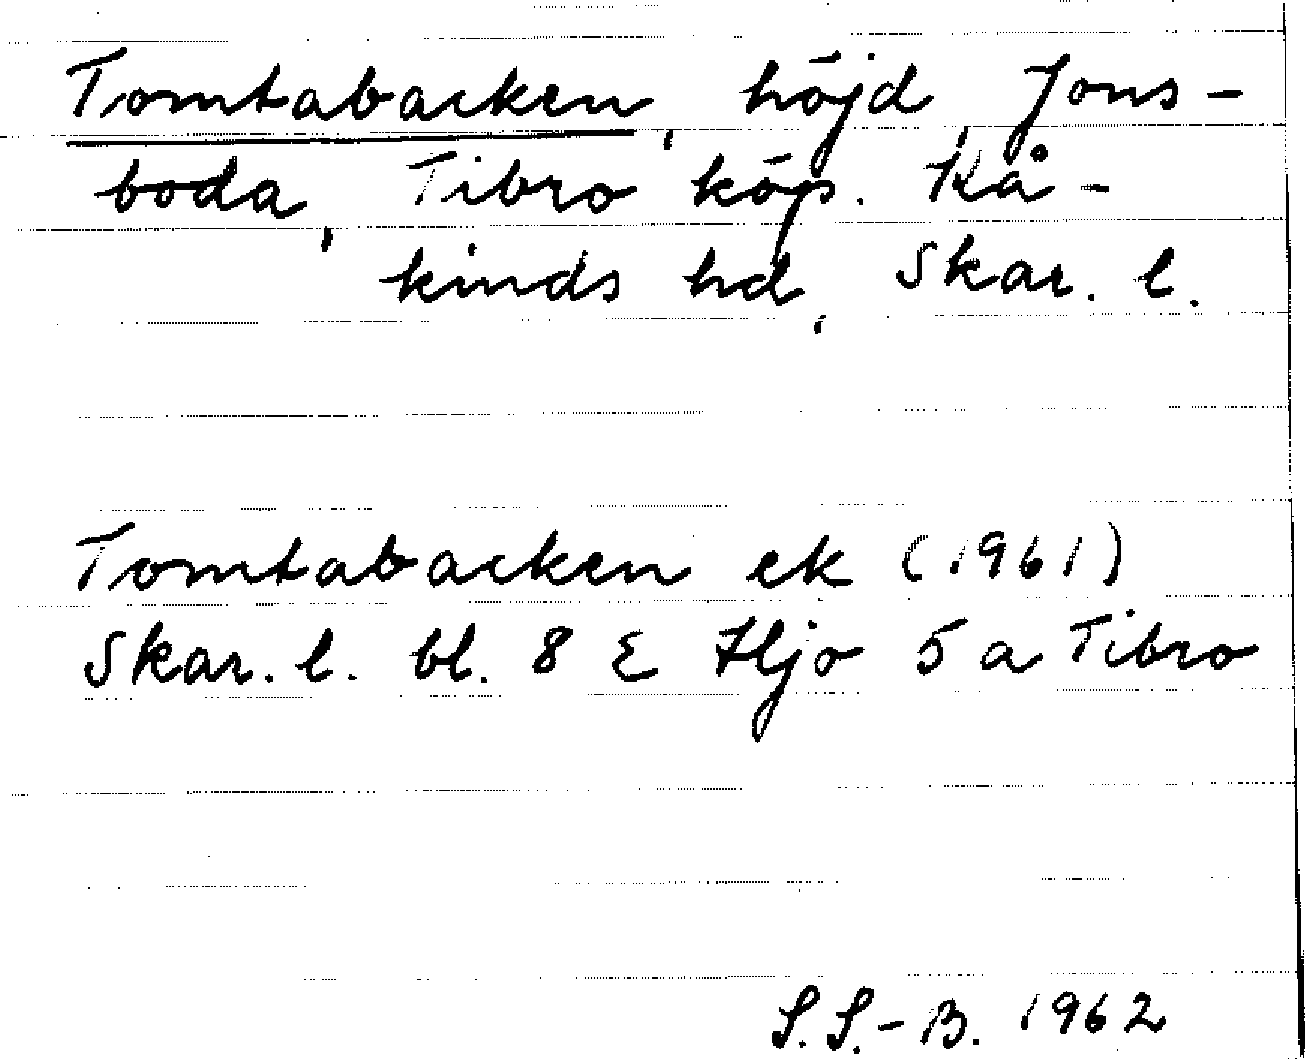 Tomtabacken, höjd, Jons-
boda, Tibro köp. Kå-
kinds hd, Skar. l.
Tomtabacken ek (1961)
Skar. l. bl. 8 E Hjo 5 a Tibro
S.S.-B. 1962